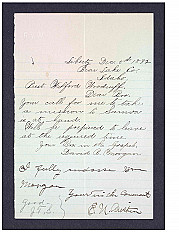 Liberty Dec 9th 1892
Bear Lake Co.
Idaho.
Prest Wilford Woodruff.
Dear Bro.
Your call for me to take
a mission to Samoa
is at hand.
Will be prepared to leave
at the required time.
Your Bro in the Gospel,
David R.
I fully endorse Bro
Yours in the Covenant
E. N. Austin
Good
J. F. S.